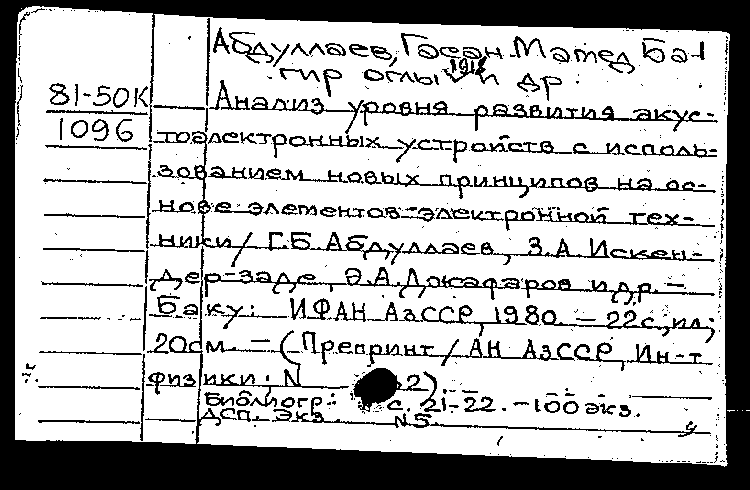 Абдуллаев, Гасан Мамед Ба-
гир оглы 1918 и др.
81-50К
1096
Анализ уровня развития акус-
тоэлектронных устройств с исполь-
зованием новых принципов на ос-
нове элементов электронной тех-
ники / Г.Б. Абдуллаев, З.А. Искен-
дер-заде, Э.А. Джафаров и др. –
Баку: ИФАН АзССР, 1980. – 22с., ил;
20см. – (Препринт / АН АзССР, Ин-т
физики; N 2).
Библиогр.: с. 21-22. – 100 экз.
ДСП. Экз. N5.